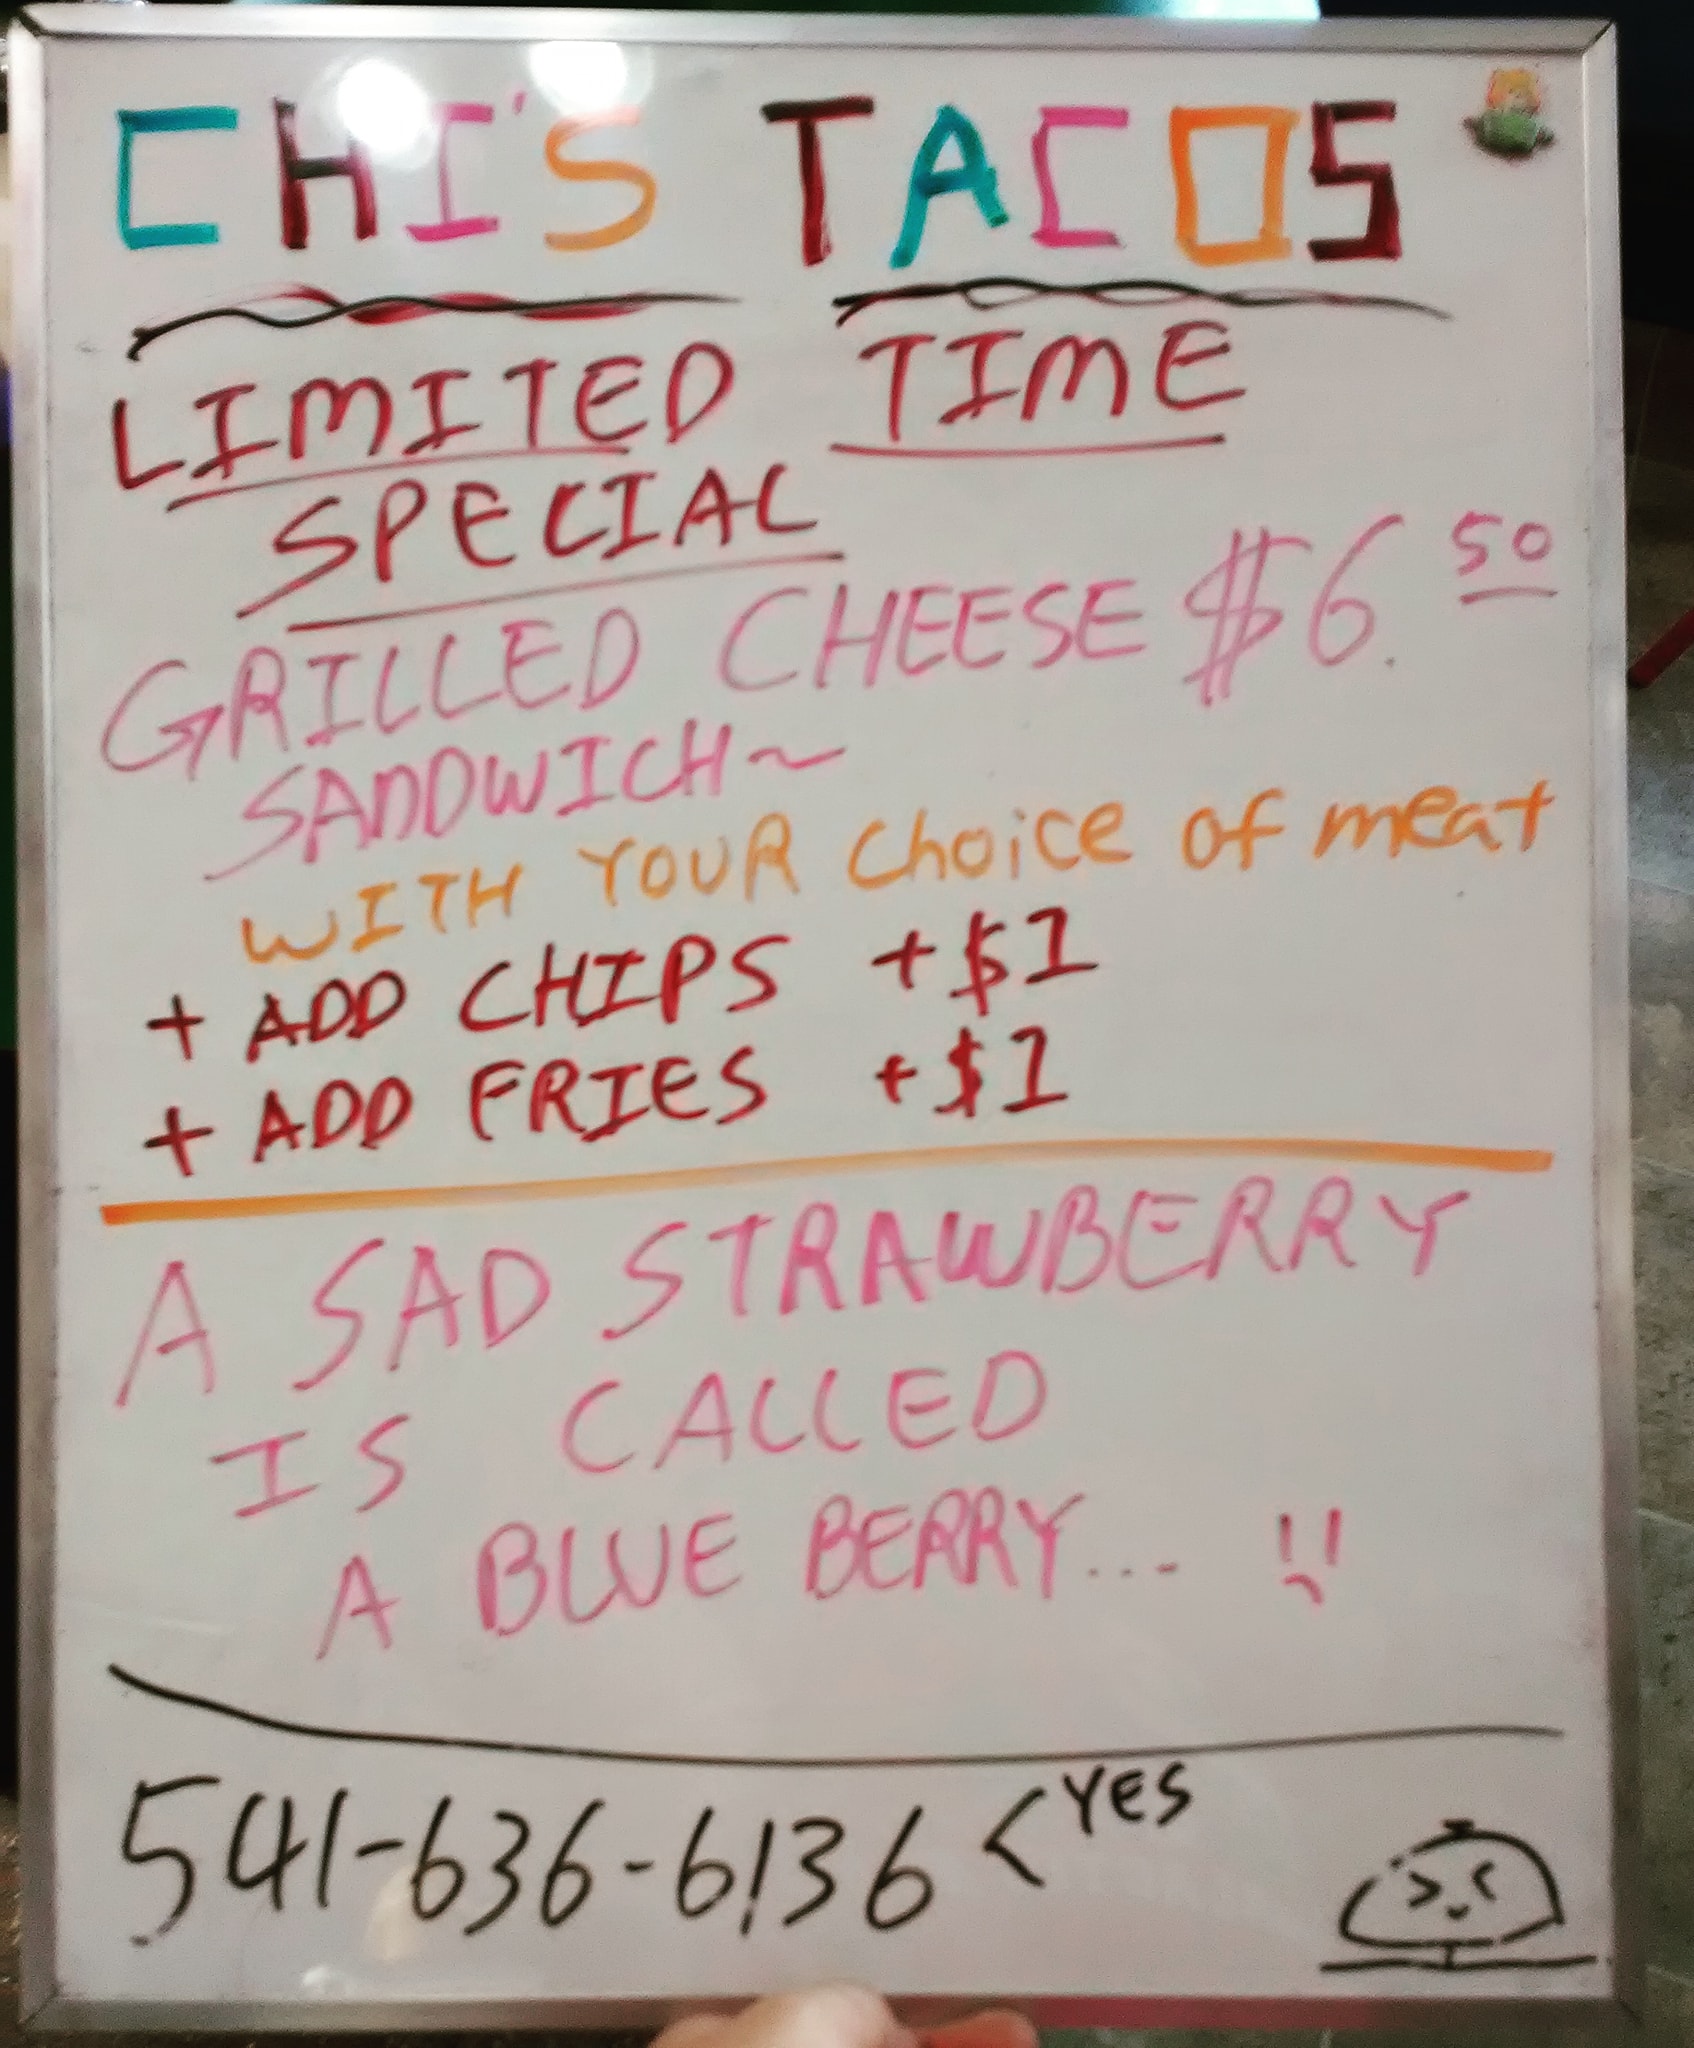 CHI'S TACOS
LIMITED TIME
SPECIAL
GRILLED CHEESE $6.50
SANDWICH~
WITH YOUR choice of meat
+ ADD CHIPS +$1
+ ADD FRIES +$1
A SAD STRAWBERRY
IS CALLED
A BLUE BERRY...
541-636-6136 < YES